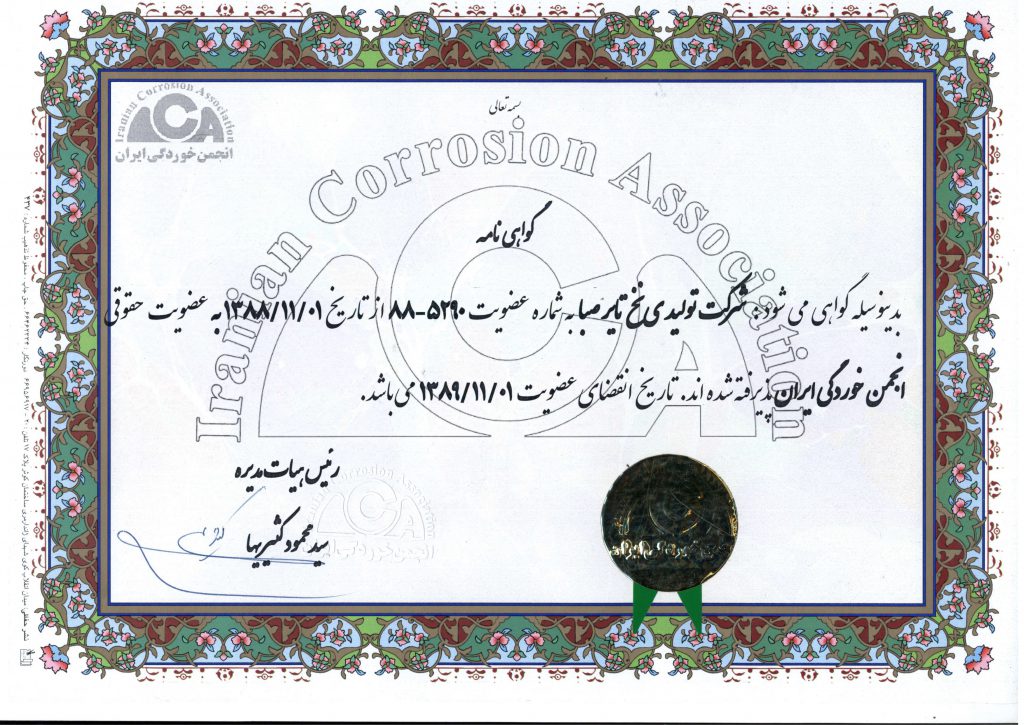 Iranian Corrosion Association
ICA
انجمن خوردگی ایران
بسمه تعالی
Iranian Corrosion Association
ICA
گواهی نامه
بدینوسیله گواهی می شود: شرکت تولیدی نخ تایر صبا به شماره عضویت ۵۲۹۰-۸۸ از تاریخ ۱۳۸۸/۱۱/۰۱ به عضویت حقوقی
انجمن خوردگی ایران پذیرفته شده اند. تاریخ انقضای عضویت ۱۳۸۹/۱۱/۰۱ می باشد.
رئیس هیات مدیره
سید محمود کثیریها
Corrosion Association
ICA
انجمن خوردگی ایران